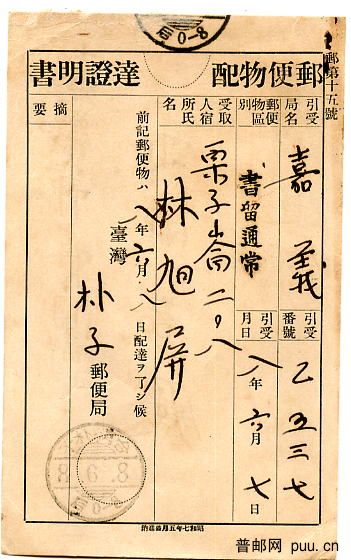 郵第十五號
郵便物配達證明書
引受局名
嘉義
引受番號
乙五三七
郵便物區別
書留通常
引受月日
八年六月七日
受取人宿所氏名
栗子崙二〇八
林旭屏
前記郵便物ハ八年六月八日配達ヲ了シ候
臺灣朴子郵便局
摘要
昭和七年五月
后0-8
8. 9. 8
普邮网 puu.cn